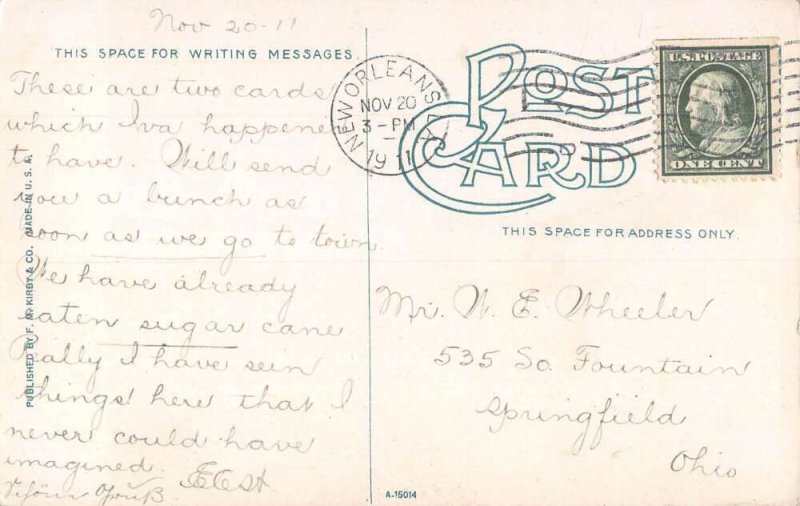 Nov 20-11
THIS SPACE FOR WRITING MESSAGES
These are two cards
which Iva happene
to have. Will send
you a bunch as
soon as we go to town
We have already
eaten sugar cane.
Really I have seen
things here that I
never could have
imagined.
PUBLISHED BY F. M. KIRBY & CO. MADE IN U. S. A.
POST CARD
NEW ORLEANS
NOV 20
3-PM
1911
U.S. POSTAGE
ONE CENT
THIS SPACE FOR ADDRESS ONLY.
Mr. W. E. Wheeler
535 So. Fountain
Springfield
Ohio
A-15014